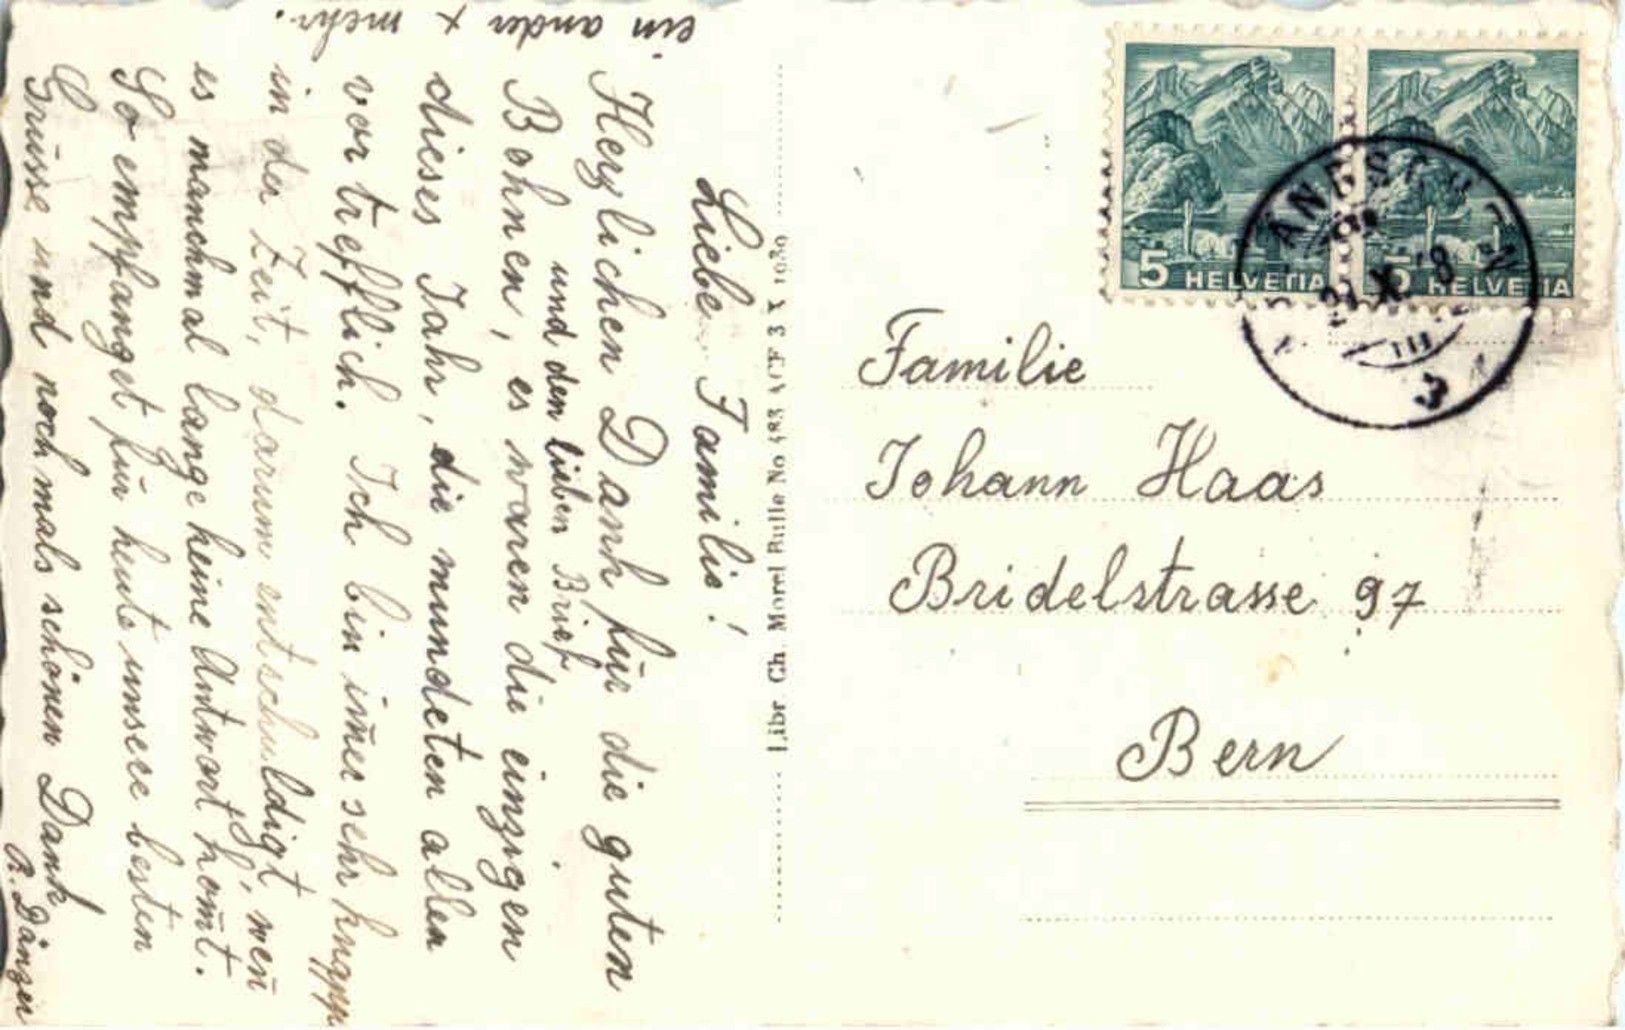 Liebe Familie!
Herzlichen Dank für die guten
und den lieben Brief
Bohnen, es waren die einzigen
dieses Jahr, die mundeten allen
vortrefflich. Ich bin im̅er sehr knapp
in der Zeit, darum entschuldigt, wen̅
es manchmal lange keine Antwort kom̅t.
So empfanget für heute unsere besten
Grüsse und nochmals schönen Dank
R. Dänzer
ein ander x mehr.
Libr. Ch. Morel Bulle No 483 ACF 3 X 1939
5 HELVETIA
5 HELVETIA
Familie
Johann Haas
Bridelstrasse 97
Bern